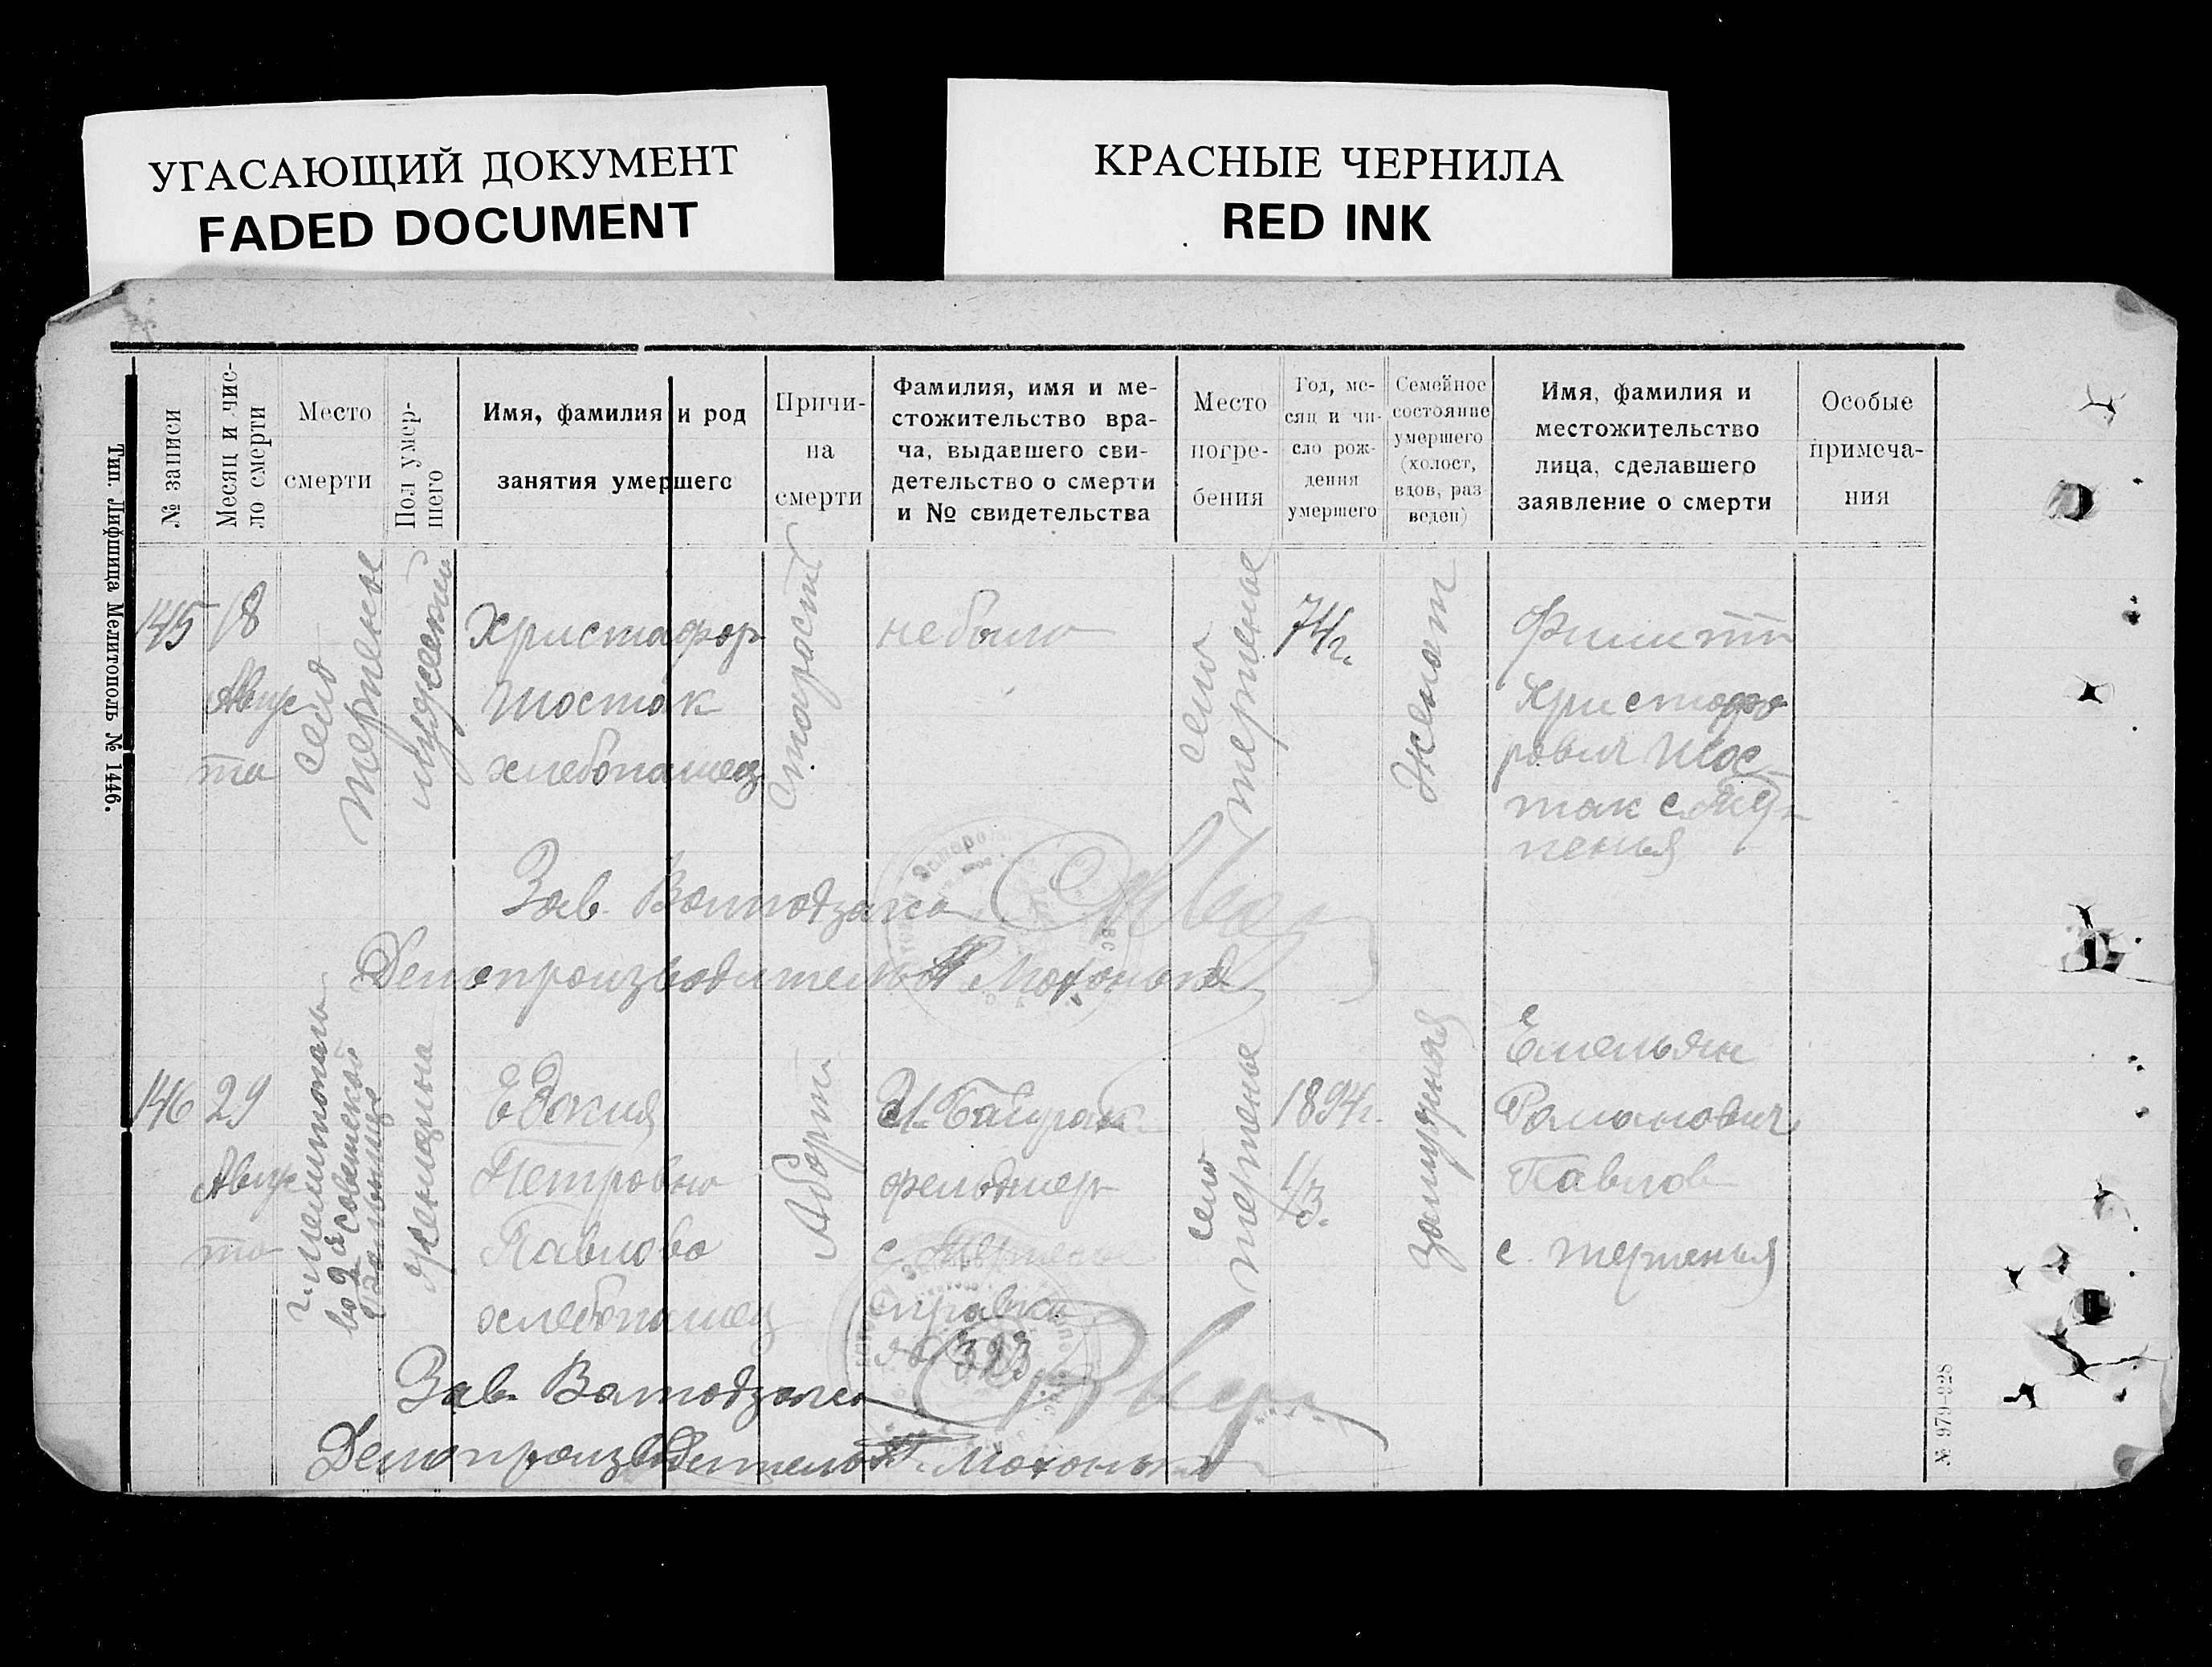 УГАСАЮЩИЙ ДОКУМЕНТ
FADED DOCUMENT
КРАСНЫЕ ЧЕРНИЛА
RED INK
Тип. Лифшица Мелитополь № 1446.
№ записи
Месяц и чис-
ло смерти
Место
смерти
Пол умер-
шего
Имя, фамилия и род
занятия умершего
Причи-
на
смерти
Фамилия, имя и ме-
стожительство вра-
ча, выдавшего сви-
детельство о смерти
и № свидетельства
Место
погре-
бения
Год, ме-
сяц и чи-
сло рож-
дения
умершего
Семейное
состояние
умершего
(холост,
вдов, раз
веден)
Имя, фамилия и
местожительство
лица, сделавшего
заявление о смерти
Особые
примеча-
ния
145
18
Авгус
та
село
Терпенье
мужеский
Христофор
Шостак
хлебопашец
Старость
не было
село
терпение
74 г.
Женат
Филипп
Христофо
рович Шос
так с. Тер-
пенья
Зав. Волподзагса
Делопроизводитель
146
29
Авгус
та
г. Мелитополь
во 2й советской
больнице
женщина
Евдокия
Петровна
Павлова
хлебопашец
Аборт
фельдшер
с. Терпенье
справка
№ 323
село
терпенье
1894 г.
1/3.
замужняя
Емельян
Романович
Павлов
с. терпенья
Зав. Волподзагса
Делопроизводитель
№ 979-928